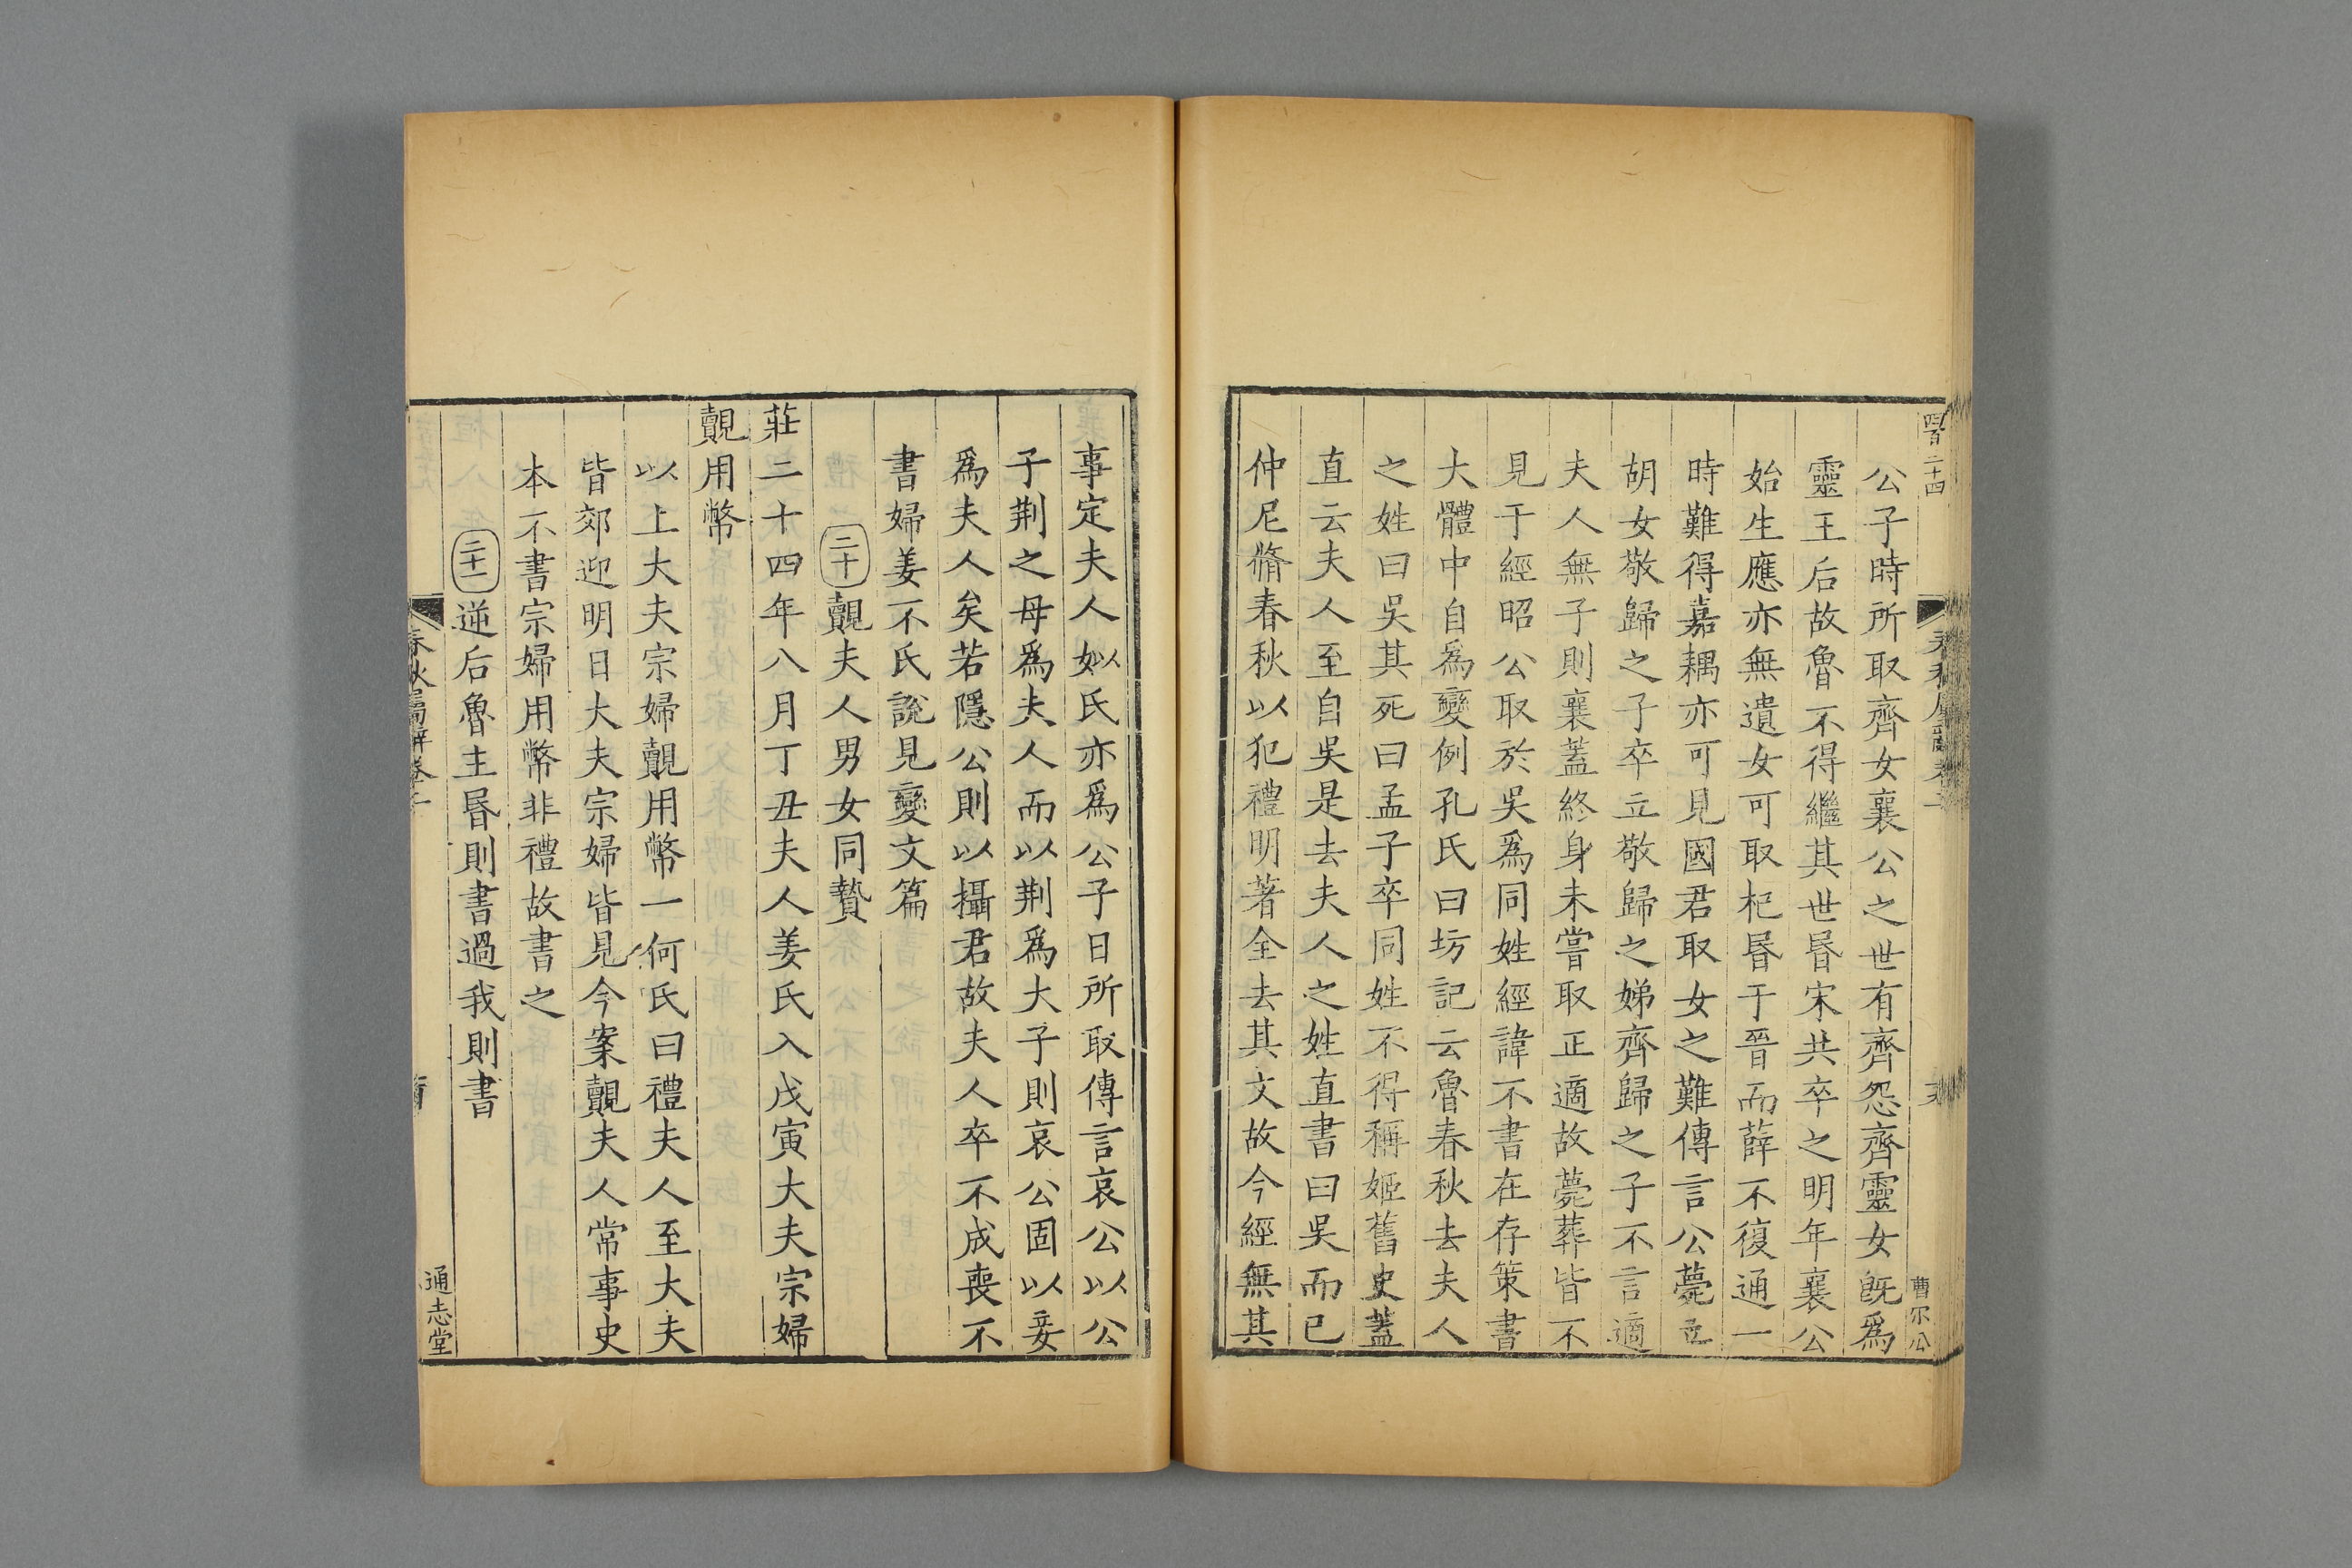 公子時所取齊女襄公之世有齊怨齊靈女旣爲
靈王后故魯不得繼其世昬宋共卒之明年襄公
始生應亦無遺女可取杞昬于晉而薛不復通一
時難得嘉耦亦可見國君取女之難傳言公薨立
胡女敬歸之子卒立敬歸之娣齊歸之子不言適
夫人無子則襄蓋終身未嘗取正適故薨葬皆不
見于經昭公取於吳爲同姓經諱不書在存策書
大體中自爲變例孔氏曰坊記云魯春秋去夫人
之姓曰吳其死曰孟子卒同姓不得稱姬舊史蓋
直云夫人至自吳是去夫人之姓直書曰吳而已
仲尼脩春秋以犯禮明著全去其文故今經無其
事定夫人姒氏亦爲公子日所取傳言哀公以公
子荆之母爲夫人而以荆爲大子則哀公固以妾
爲夫人矣若隱公則以攝君故夫人卒不成喪不
書婦姜不氏說見變文篇
二十覿夫人男女同贄
莊二十四年八月丁丑夫人姜氏入戊寅大夫宗婦
覿用幣
以上大夫宗婦覿用幣一何氏曰禮夫人至大夫
皆郊迎明日大夫宗婦皆見今案覿夫人常事史
本不書宗婦用幣非禮故書之
二十一逆后魯主昬則書過我則書
通志堂